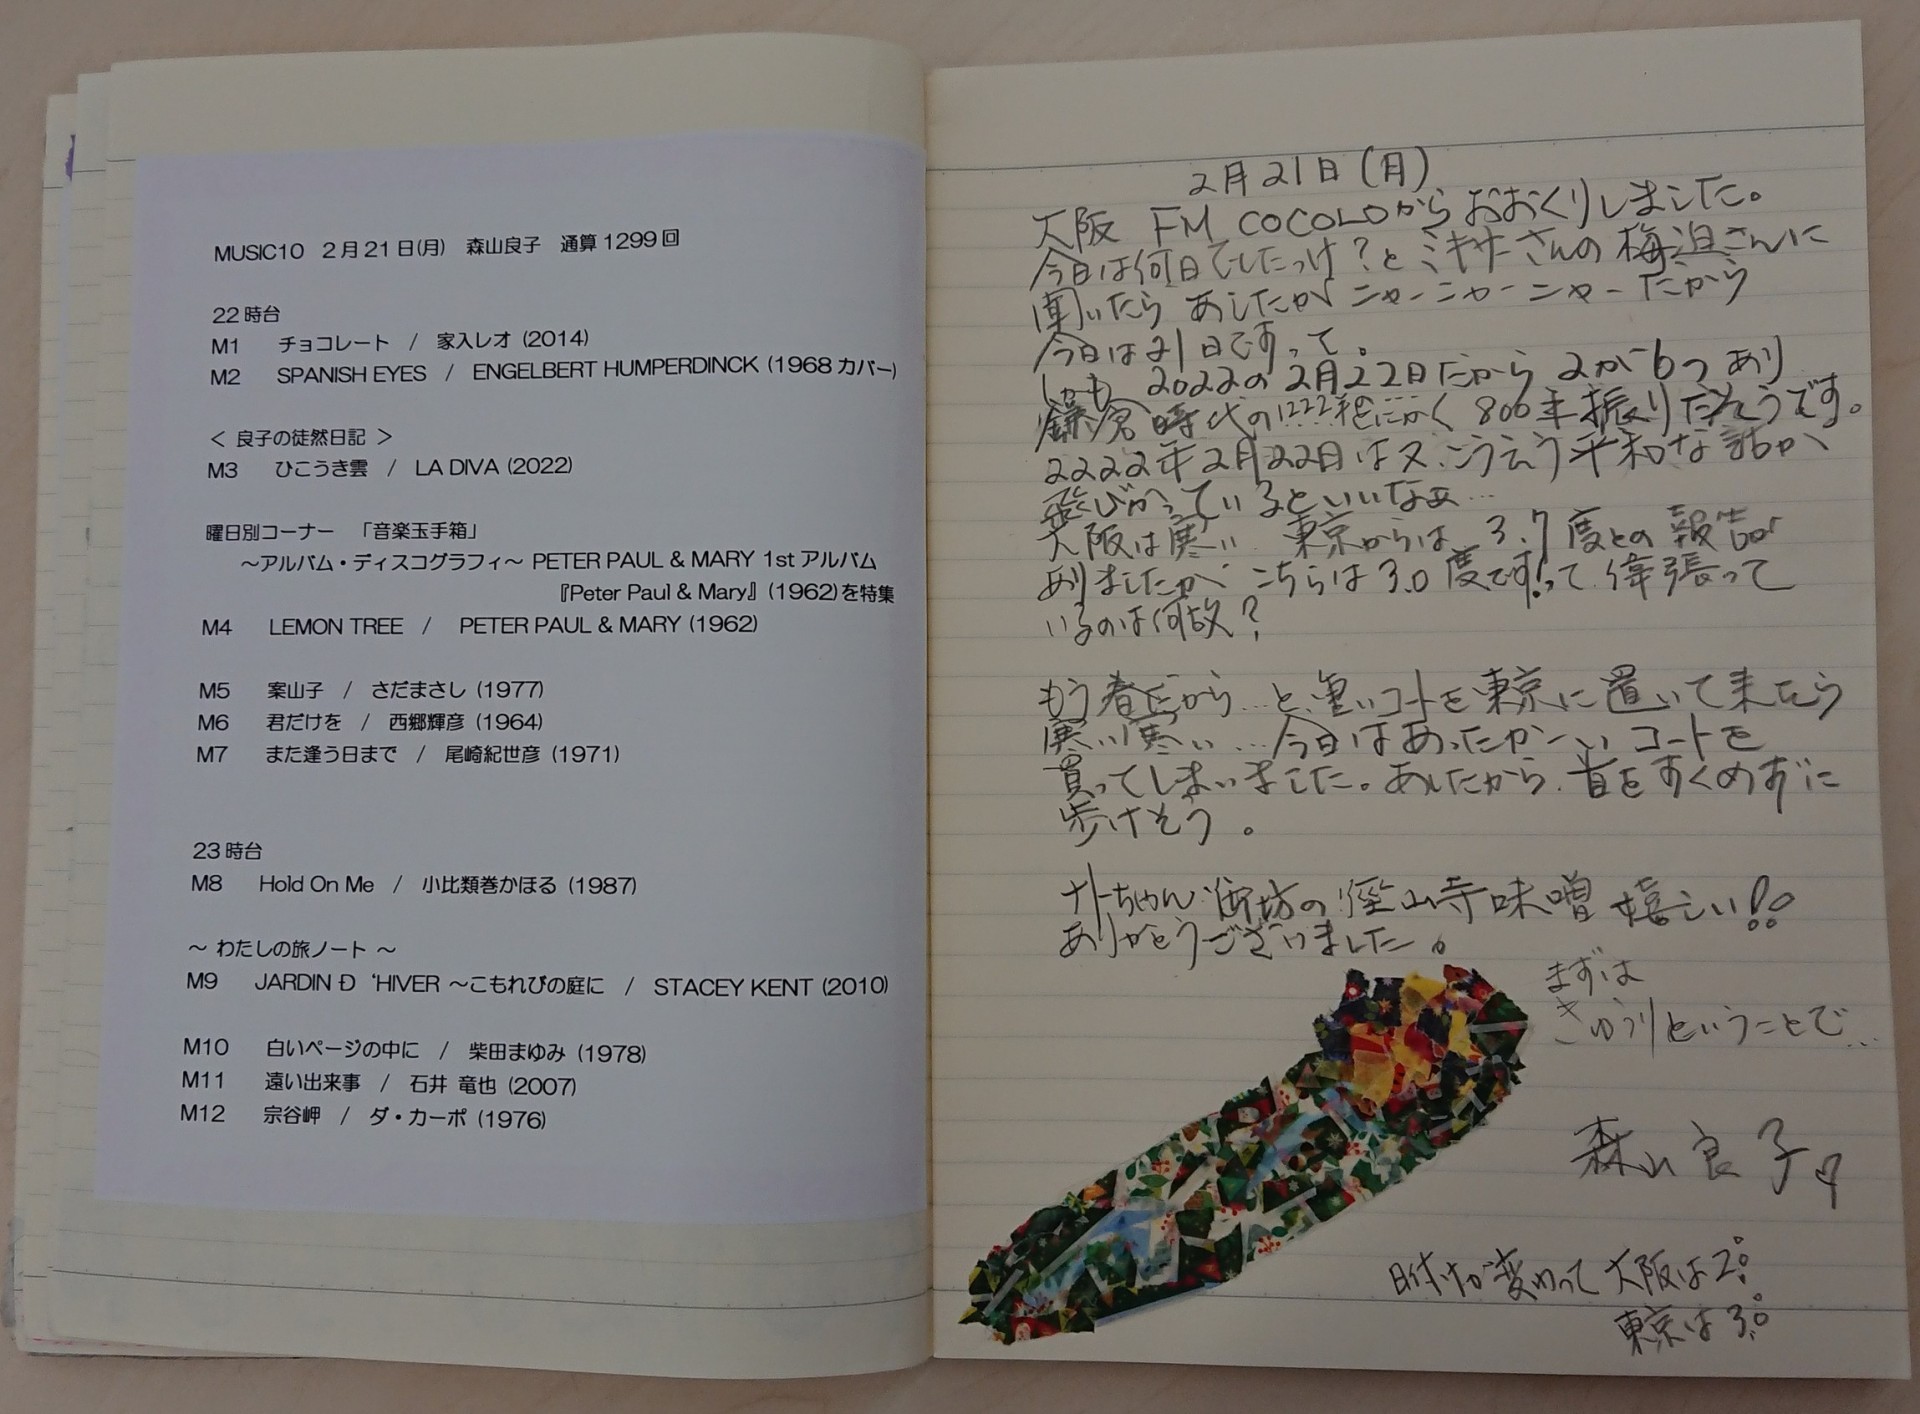 MUSIC10 2月21日(月) 森山良子 通算1299回
22時台
M1 チョコレート / 家入レオ (2014)
M2 SPANISH EYES / ENGELBERT HUMPERDINCK (1968 カバー)
< 良子の徒然日記 >
M3 ひこうき雲 / LA DIVA (2022)
曜日別コーナー 「音楽玉手箱」
～アルバム・ディスコグラフィ～ PETER PAUL & MARY 1st アルバム
『Peter Paul & Mary』(1962)を特集
M4 LEMON TREE / PETER PAUL & MARY (1962)
M5 案山子 / さだまさし (1977)
M6 君だけを / 西郷輝彦 (1964)
M7 また逢う日まで / 尾崎紀世彦 (1971)
23時台
M8 Hold On Me / 小比類巻かほる (1987)
～ わたしの旅ノート ～
M9 JARDIN Ð ‘HIVER ～こもれびの庭に / STACEY KENT (2010)
M10 白いページの中に / 柴田まゆみ (1978)
M11 遠い出来事 / 石井 竜也 (2007)
M12 宗谷岬 / ダ・カーポ (1976)
2月21日(月)
大阪 FM COCOLOからおおくりしました。
今日は何日でしたっけ?とミキサーさんの梅迫さんに
聞いたら あしたが ニャーニャーニャーだから
今日は21日ですって。
しかも 2022の2月22日だから 2が6つあり
鎌倉時代の1222 にかく 800年振りだそうです。
2222年2月22日は又、こうゆう平和な話が
飛びかっているといいなぁ…
大阪は寒い 東京からは 3.7度との報告が
ありましたが こちらは3.0度です!って 偉張って
いるのは何故?
もう春だから…と、重いコートを東京に置いて来たら
寒い寒い…今日はあったかーいコートを
買ってしまいました。あしたから、首をすくめずに
歩けそう。
ナトーちゃん 坊の径山寺味噌 嬉しい!!
ありがとうございました。
まずは
きゅうりということで…
森山良子
日付けが変わって 大阪は2°
東京は3°